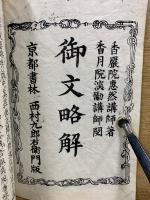 香嚴院惠然講師著
香月院深勵講師閲
御文略解
京都書林 西村九郎右衛門版